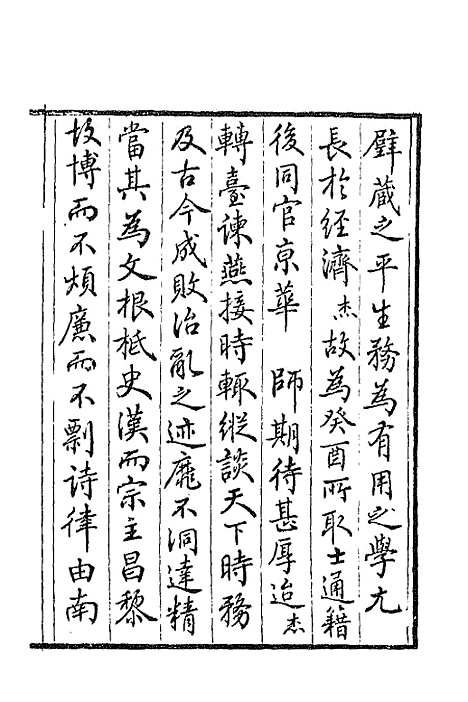 壁藏之平生務為有用之學尢
長於經濟杰故為癸酉所取士通籍
後同官京華　師期待甚厚迨杰
轉臺諫燕接時輒縱談天下時務
及古今成敗治亂之迹靡不洞達精
當其為文根柢史漢而宗主昌黎
故博而不煩廉而不劌詩律由南